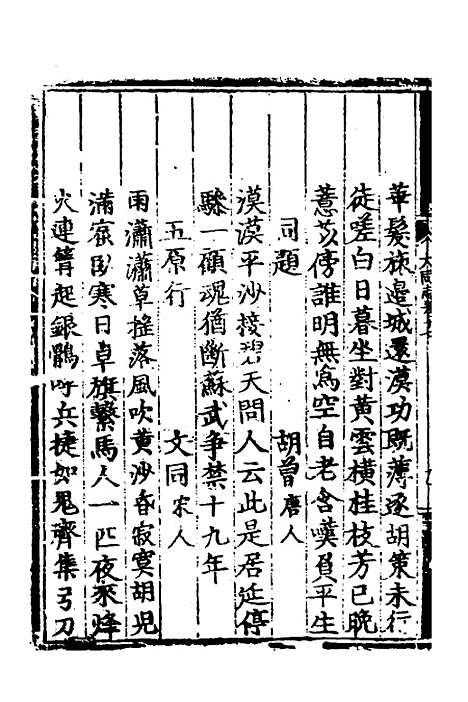 華髮旅邊城還漢功既薄逐胡策未行
徒嗟白日暮坐對黃雲橫桂枝芳已晚
薏苡傍誰明無為空自老含嘆負平生
同題 胡曾唐人
漠漠平沙接碧天問人云此是居延停
驂一顧魂猶斷蘇武爭禁十九年
五原行 文同宋人
雨瀟瀟草搖落風吹黃沙昏寂寞胡兒
滿窟臥寒日卓旗繫馬人一匹夜來烽
火連篝起銀鶻呼兵捷如鬼齊集弓刀